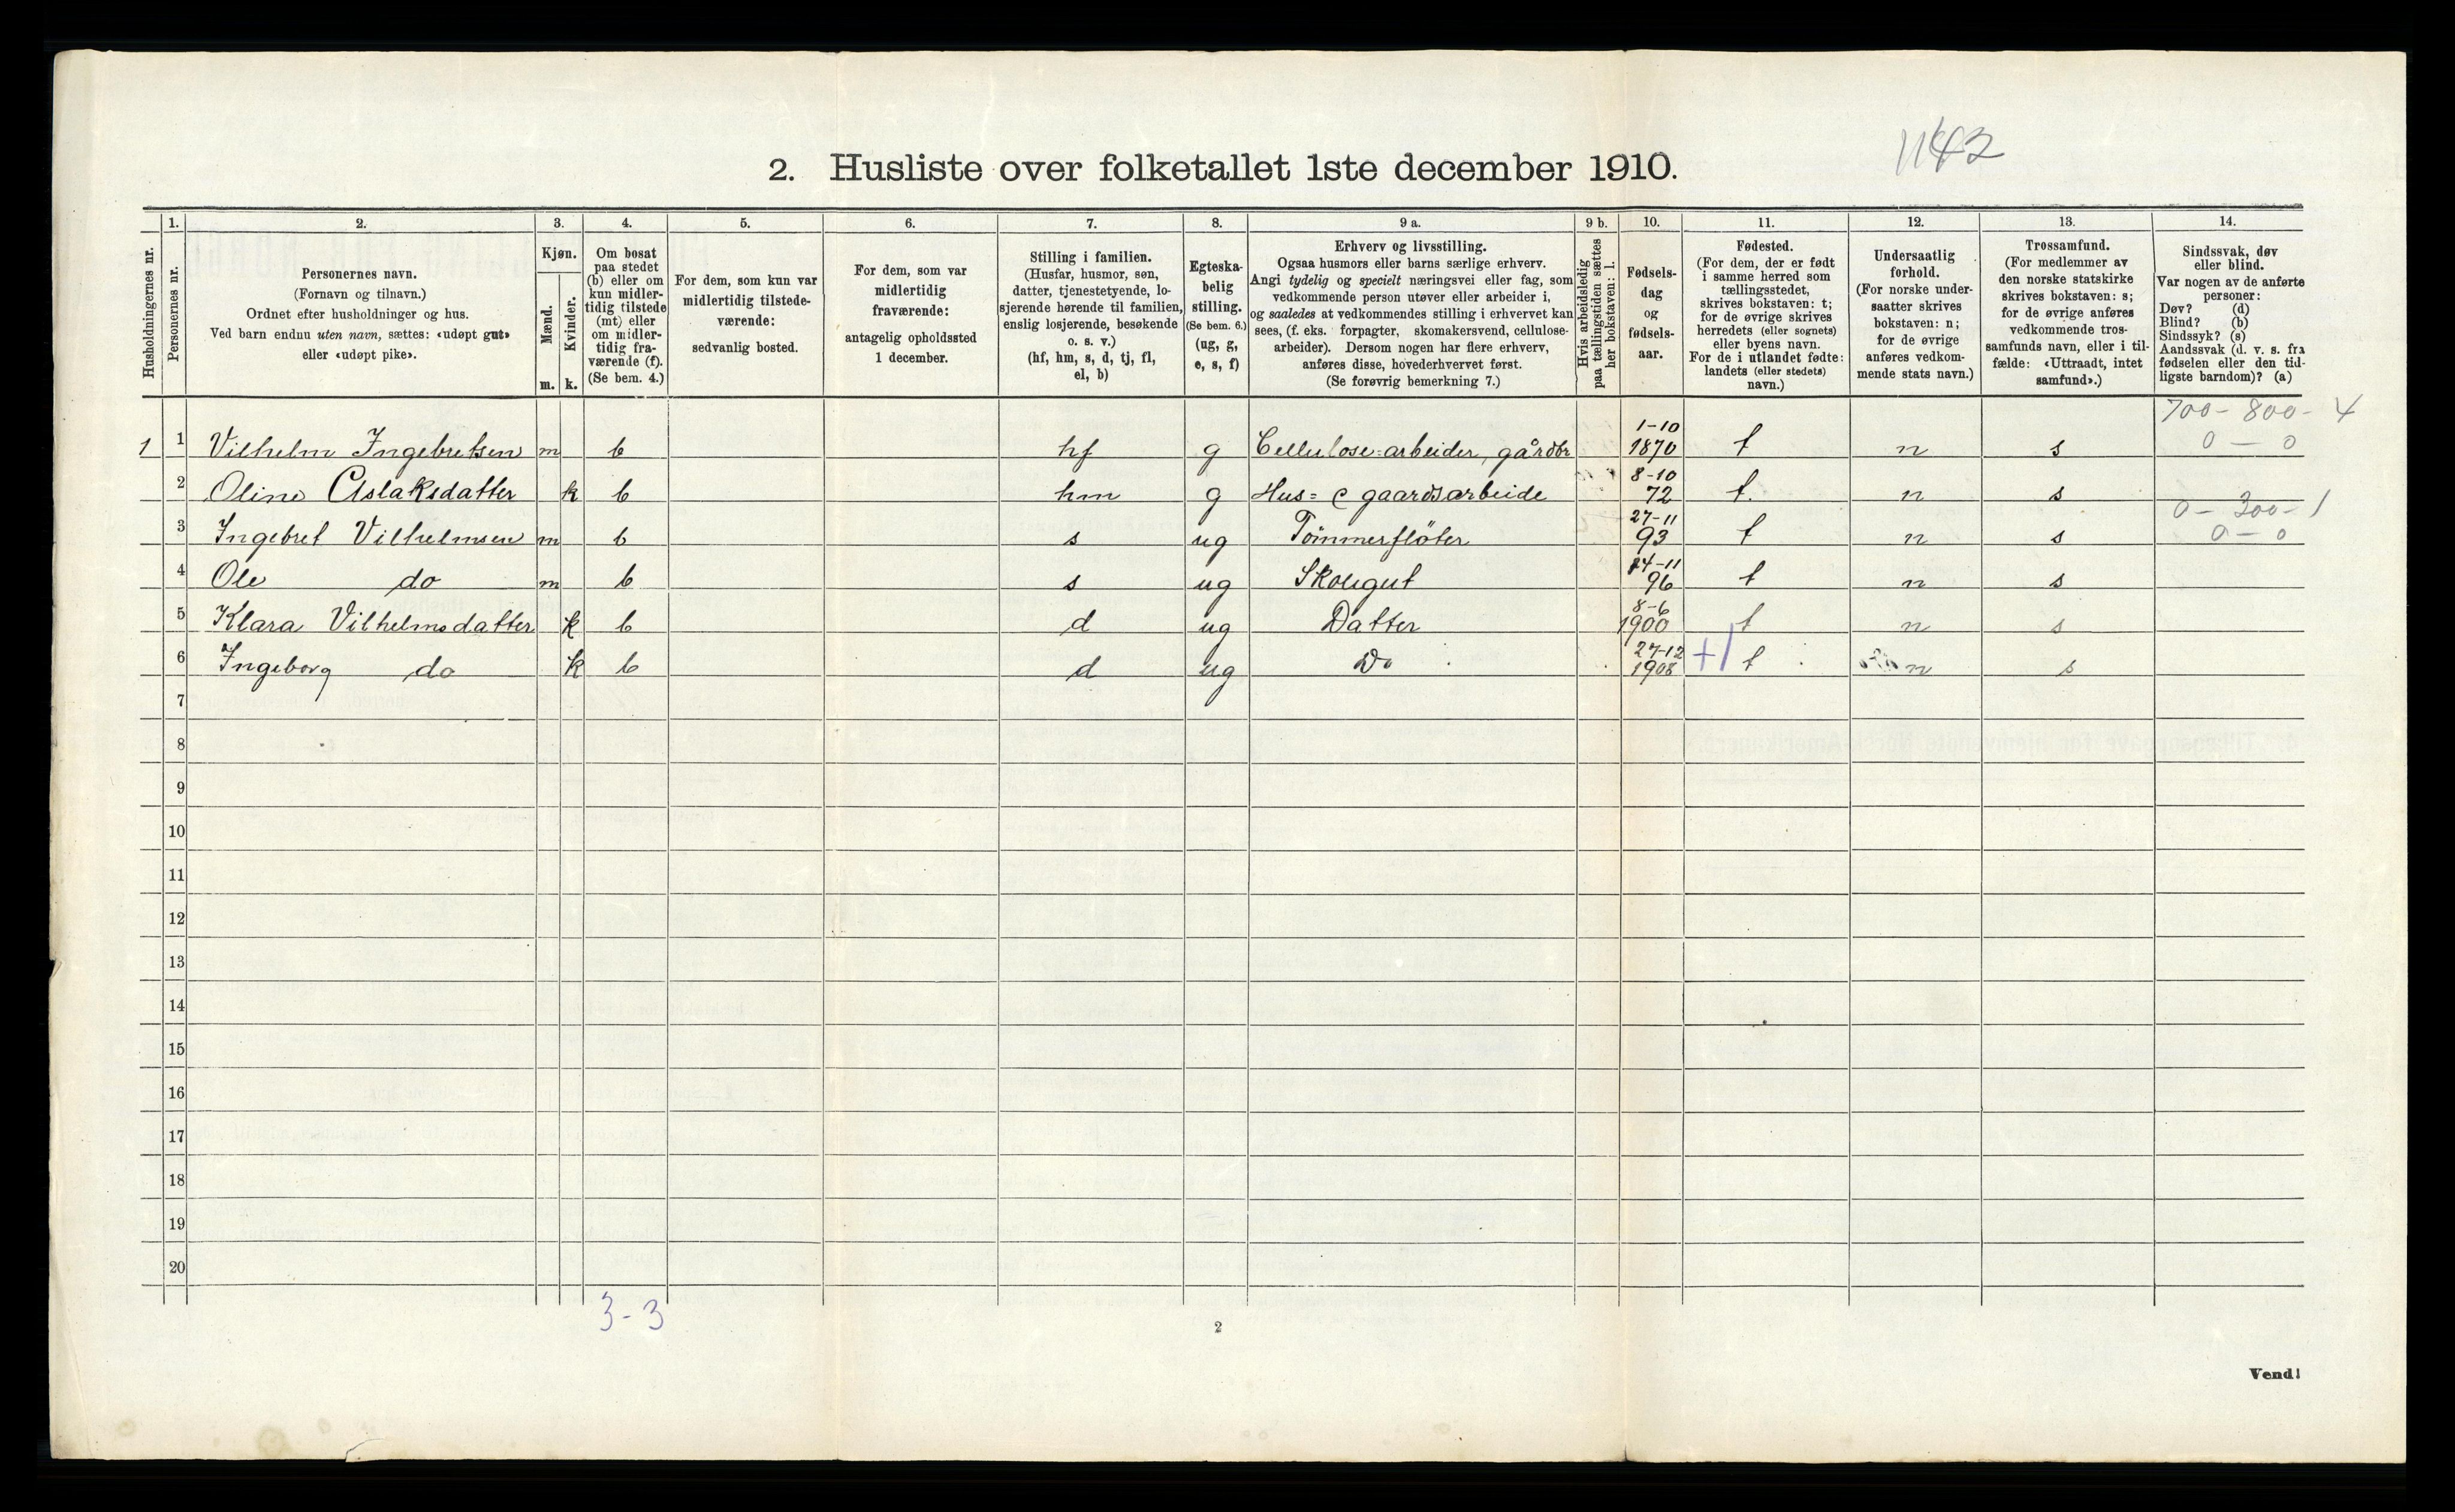 1142
2. Husliste over folketallet 1ste december 1910.
1. 2. 3. 4. 5. 6. 7. 8. 9 a. 9 b. 10. 11. 12. 13. 14.
Husholdningernes nr.
Personernes nr.
Personernes navn.
(Fornavn og tilnavn.)
Ordnet efter husholdninger og hus.
Ved barn endnu uten navn, sættes: «udøpt gut»
eller «udøpt pike».
Kjøn.
Mænd.
Kvinder.
m. k.
Om bosat
paa stedet
(b) eller om
kun midler-
tidig tilstede
(mt) eller
om midler-
tidig fra-
værende (f).
(Se bem. 4.)
For dem, som kun var
midlertidig tilstede-
værende:
sedvanlig bosted.
For dem, som var
midlertidig
fraværende:
antagelig opholdssted
1 december.
Stilling i familien.
(Husfar, husmor, søn,
datter, tjenestetyende, lo-
sjerende hørende til familien,
enslig losjerende, besøkende
o. s. v.)
(hf, hm, s, d, tj, fl,
el, b)
Egteska-
belig
stilling.
(Se bem. 6.)
(ug, g,
e, s, f)
Erhverv og livsstilling.
Ogsaa husmors eller barns særlige erhverv.
Angi tydelig og specielt næringsvei eller fag, som
vedkommende person utøver eller arbeider i,
og saaledes at vedkommendes stilling i erhvervet kan
sees, (f. eks. forpagter, skomakersvend, cellulose-
arbeider). Dersom nogen har flere erhverv,
anføres disse, hovederhvervet først.
(Se forøvrig bemerkning 7.)
Hvis arbeidsledig
paa tællingstiden sættes
her bokstaven: l.
Fødsels-
dag
og
fødsels-
aar.
Fødested.
(For dem, der er født
i samme herred som
tællingsstedet,
skrives bokstaven: t;
for de øvrige skrives
herredets (eller sognets)
eller byens navn.
For de i utlandet fødte:
landets (eller stedets)
navn.)
Undersaatlig
forhold.
(For norske under-
saatter skrives
bokstaven: n;
for de øvrige
anføres vedkom-
mende stats navn.)
Trossamfund.
(For medlemmer av
den norske statskirke
skrives bokstaven: s;
for de øvrige anføres
vedkommende tros-
samfunds navn, eller i til-
fælde: «Uttraadt, intet
samfund».)
Sindssvak, døv
eller blind.
Var nogen av de anførte
personer:
Døv? (d)
Blind? (b)
Sindssyk? (s)
Aandssvak (d. v. s. fra
fødselen eller den tid-
ligste barndom)? (a)
700- 800- 4
1 1 Vilhelm Ingebretsen m b hf g Cellulose=arbeider, gårdbr 1-10 1870 t n s 0 - 0
2 Oline Aslaksdatter k b hm g Hus= & gaardsarbeide 8-10 72 t. n s
0 - 300- 1
3 Ingebret Vilhelmsen m b s ug Tömmerflöter 27-11 93 t n s 0 - 0
4 Ole do m b s ug Skolegut 14-11 96 t n s
5 Klara Vilhelmsdatter k b d ug Datter 8-6 1900 t n s
6 Ingeborg do k b d ug Do 27-12 1908 +1 t n s
7
8
9
10
11
12
13
14
15
16
17
18
19
20
3-3
2
Vend!